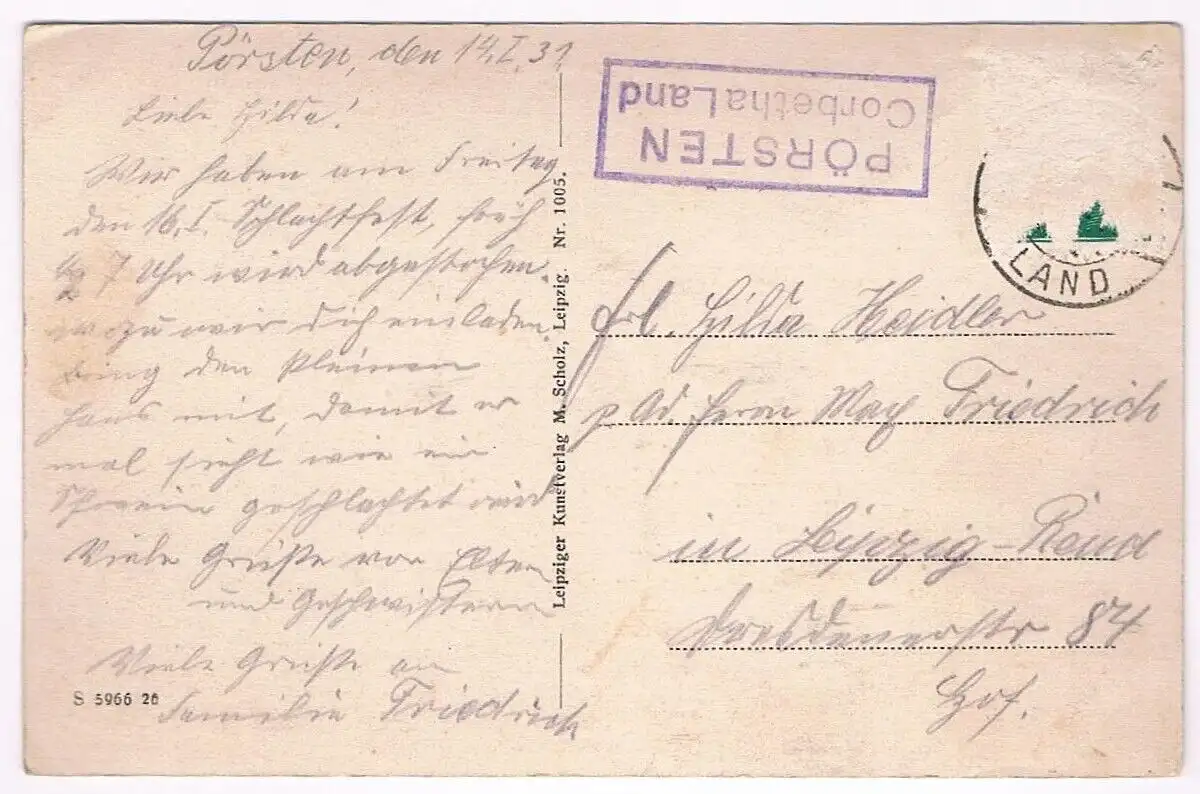 Pörsten, den 14.I.31
Liebe Hilda!
Wir haben am Freitag
den 16.I. Schlachtfest, früh
7 Uhr wird abgestochen.
wozu wir Dich einladen.
bring den kleinen
Hans mit, damit er
mal sieht wie ein
Schwein geschlachtet wird
Viele Grüße von Eltern
und Geschwistern
Viele Grüße an
Familie Friedrich
S 5966 26
Leipziger Kunstverlag M. Scholz, Leipzig. Nr. 1005.
PÖRSTEN
Corbetha Land
LAND
Frl. Hilda Heidler
p Ad. Herrn Max Friedrich
in Leipzig-Reud
Dresdenerstr 84
Hof.